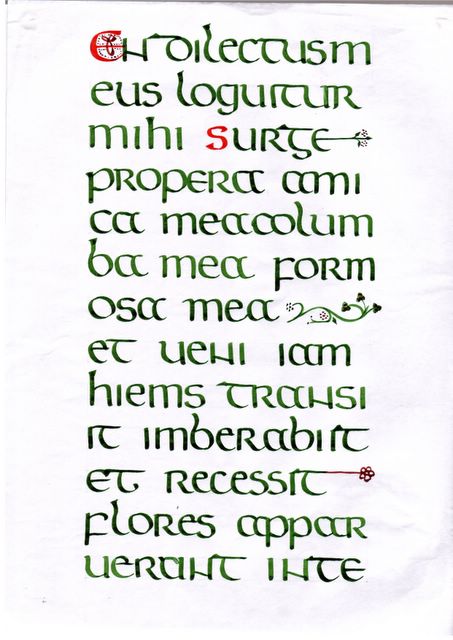 En dilectusm
eus loguitur
mihi Surge
propera ami
ca meacolum
ba mea form
osa mea
et ueni iam
hiems transi
it imberabiit
et recessit
flores appar
uerant inte